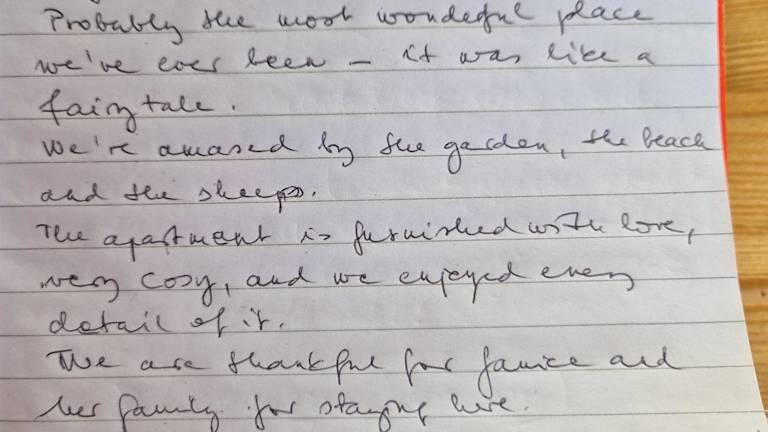 Probably the most wondeful place
we've ever been – it was like a
fairytale.
We're amased by the garden, the beach
and the sheeps.
The apartment is furnished with love,
very cosy, and we enjoyed every
detail of it.
We are thankful for Janice and
her family for staying here.